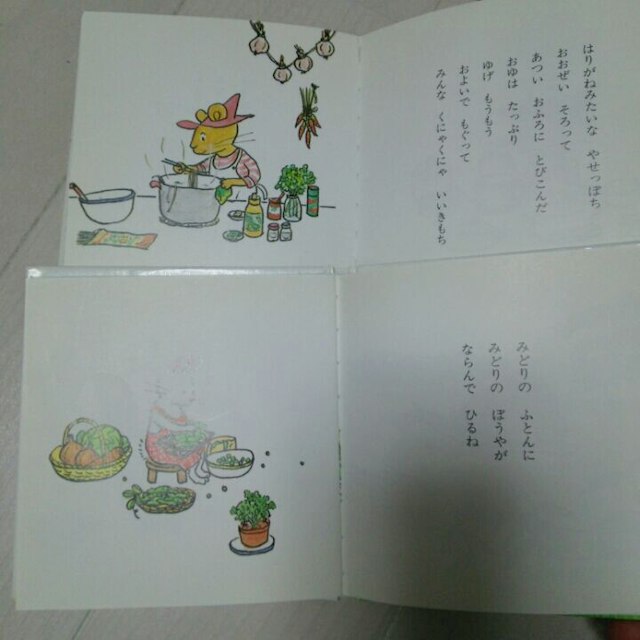 はりがねみたいな　やせっぽち
おおぜい　そろって
あつい　おふろに　とびこんだ
おゆは　たっぷり
ゆげ　もうもう
およいで　もぐって
みんな　くにゃくにゃ　いいきもち
みどりの　ふとんに
みどりの　ぼうやが
ならんで　ひるね